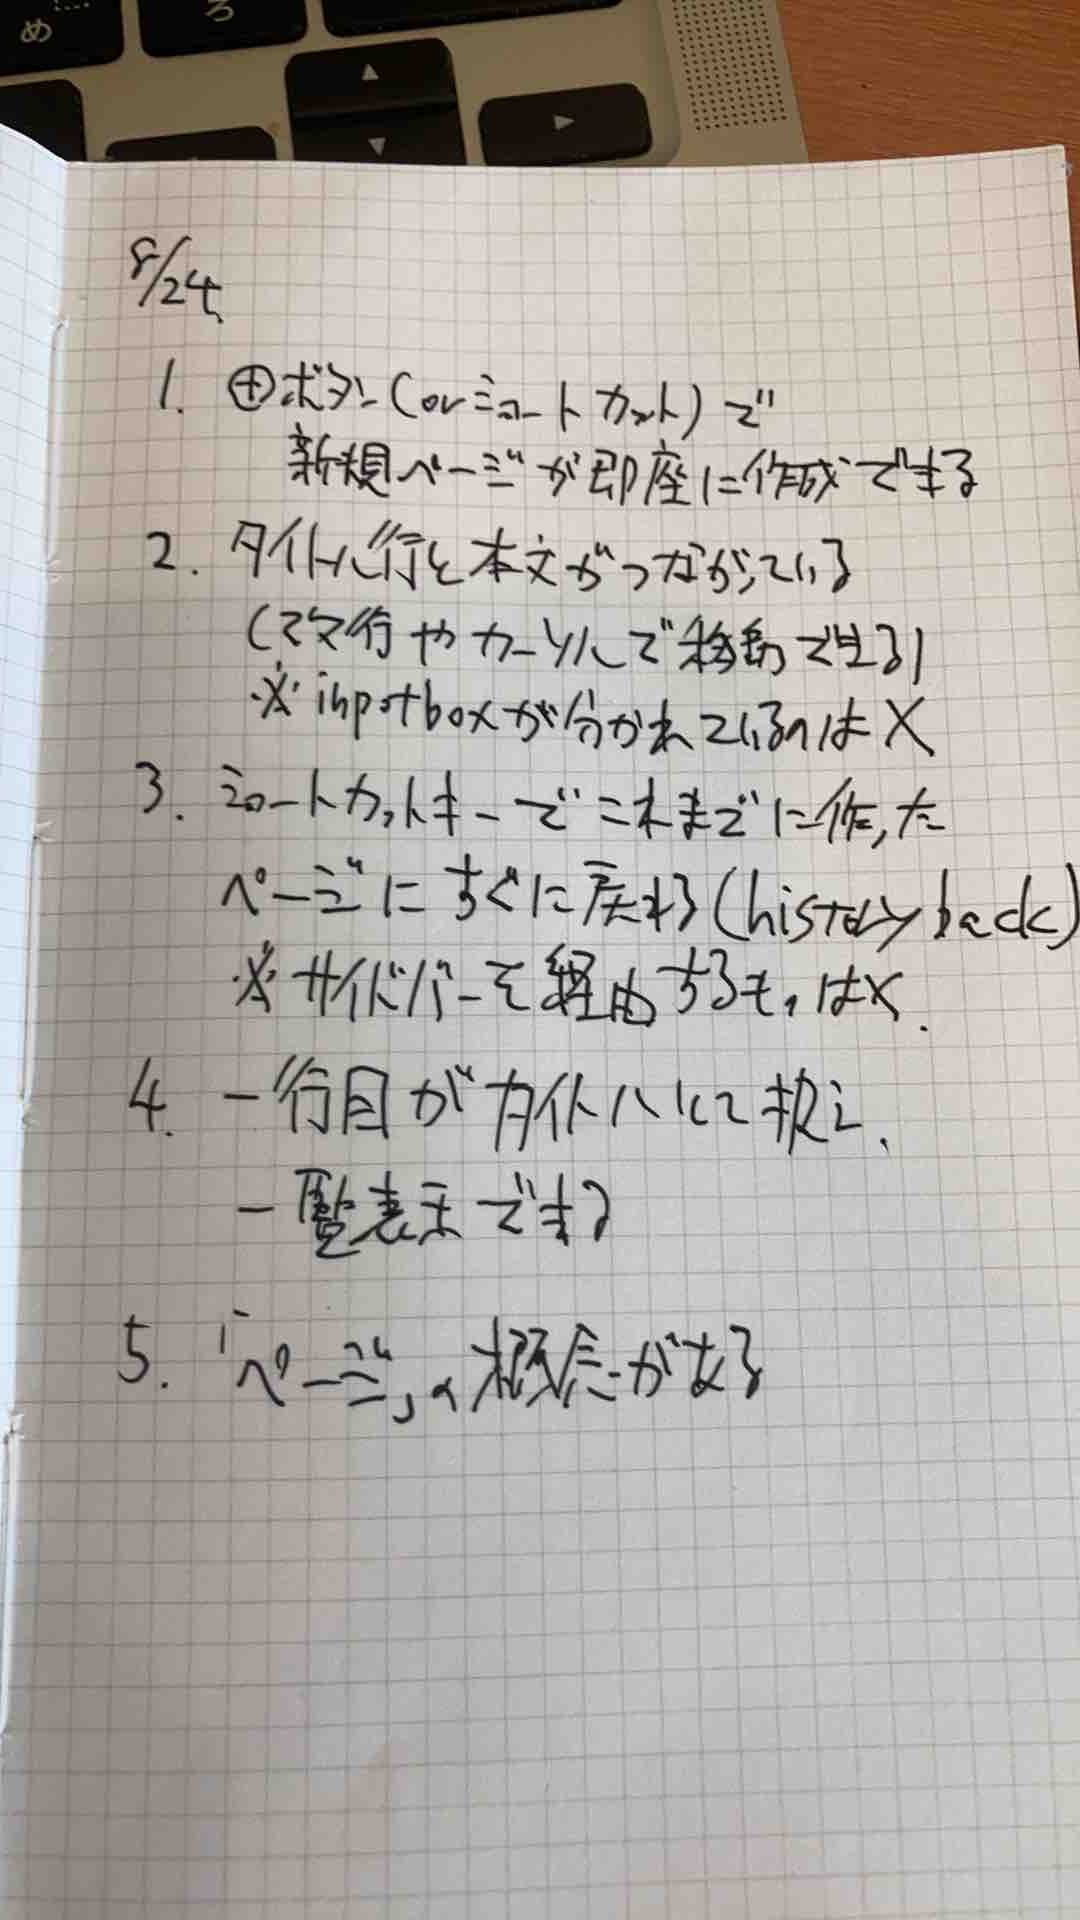 め
ろ
▲
▼
▶
8/24
1. ⊕ボタン(orショートカット)で
新規ページが即座に作成できる
2. タイトル行と本文がつながっている
(改行やカーソルで移動できる)
※inputboxが分かれているのは×
3. ショートカットキーでこれまでに作った
ページにすぐに戻れる(history back)
※サイドバーを経由するものは×.
4. 一行目がタイトルとして扱え、
一覧表示できる
5. 「ページ」の概念がある